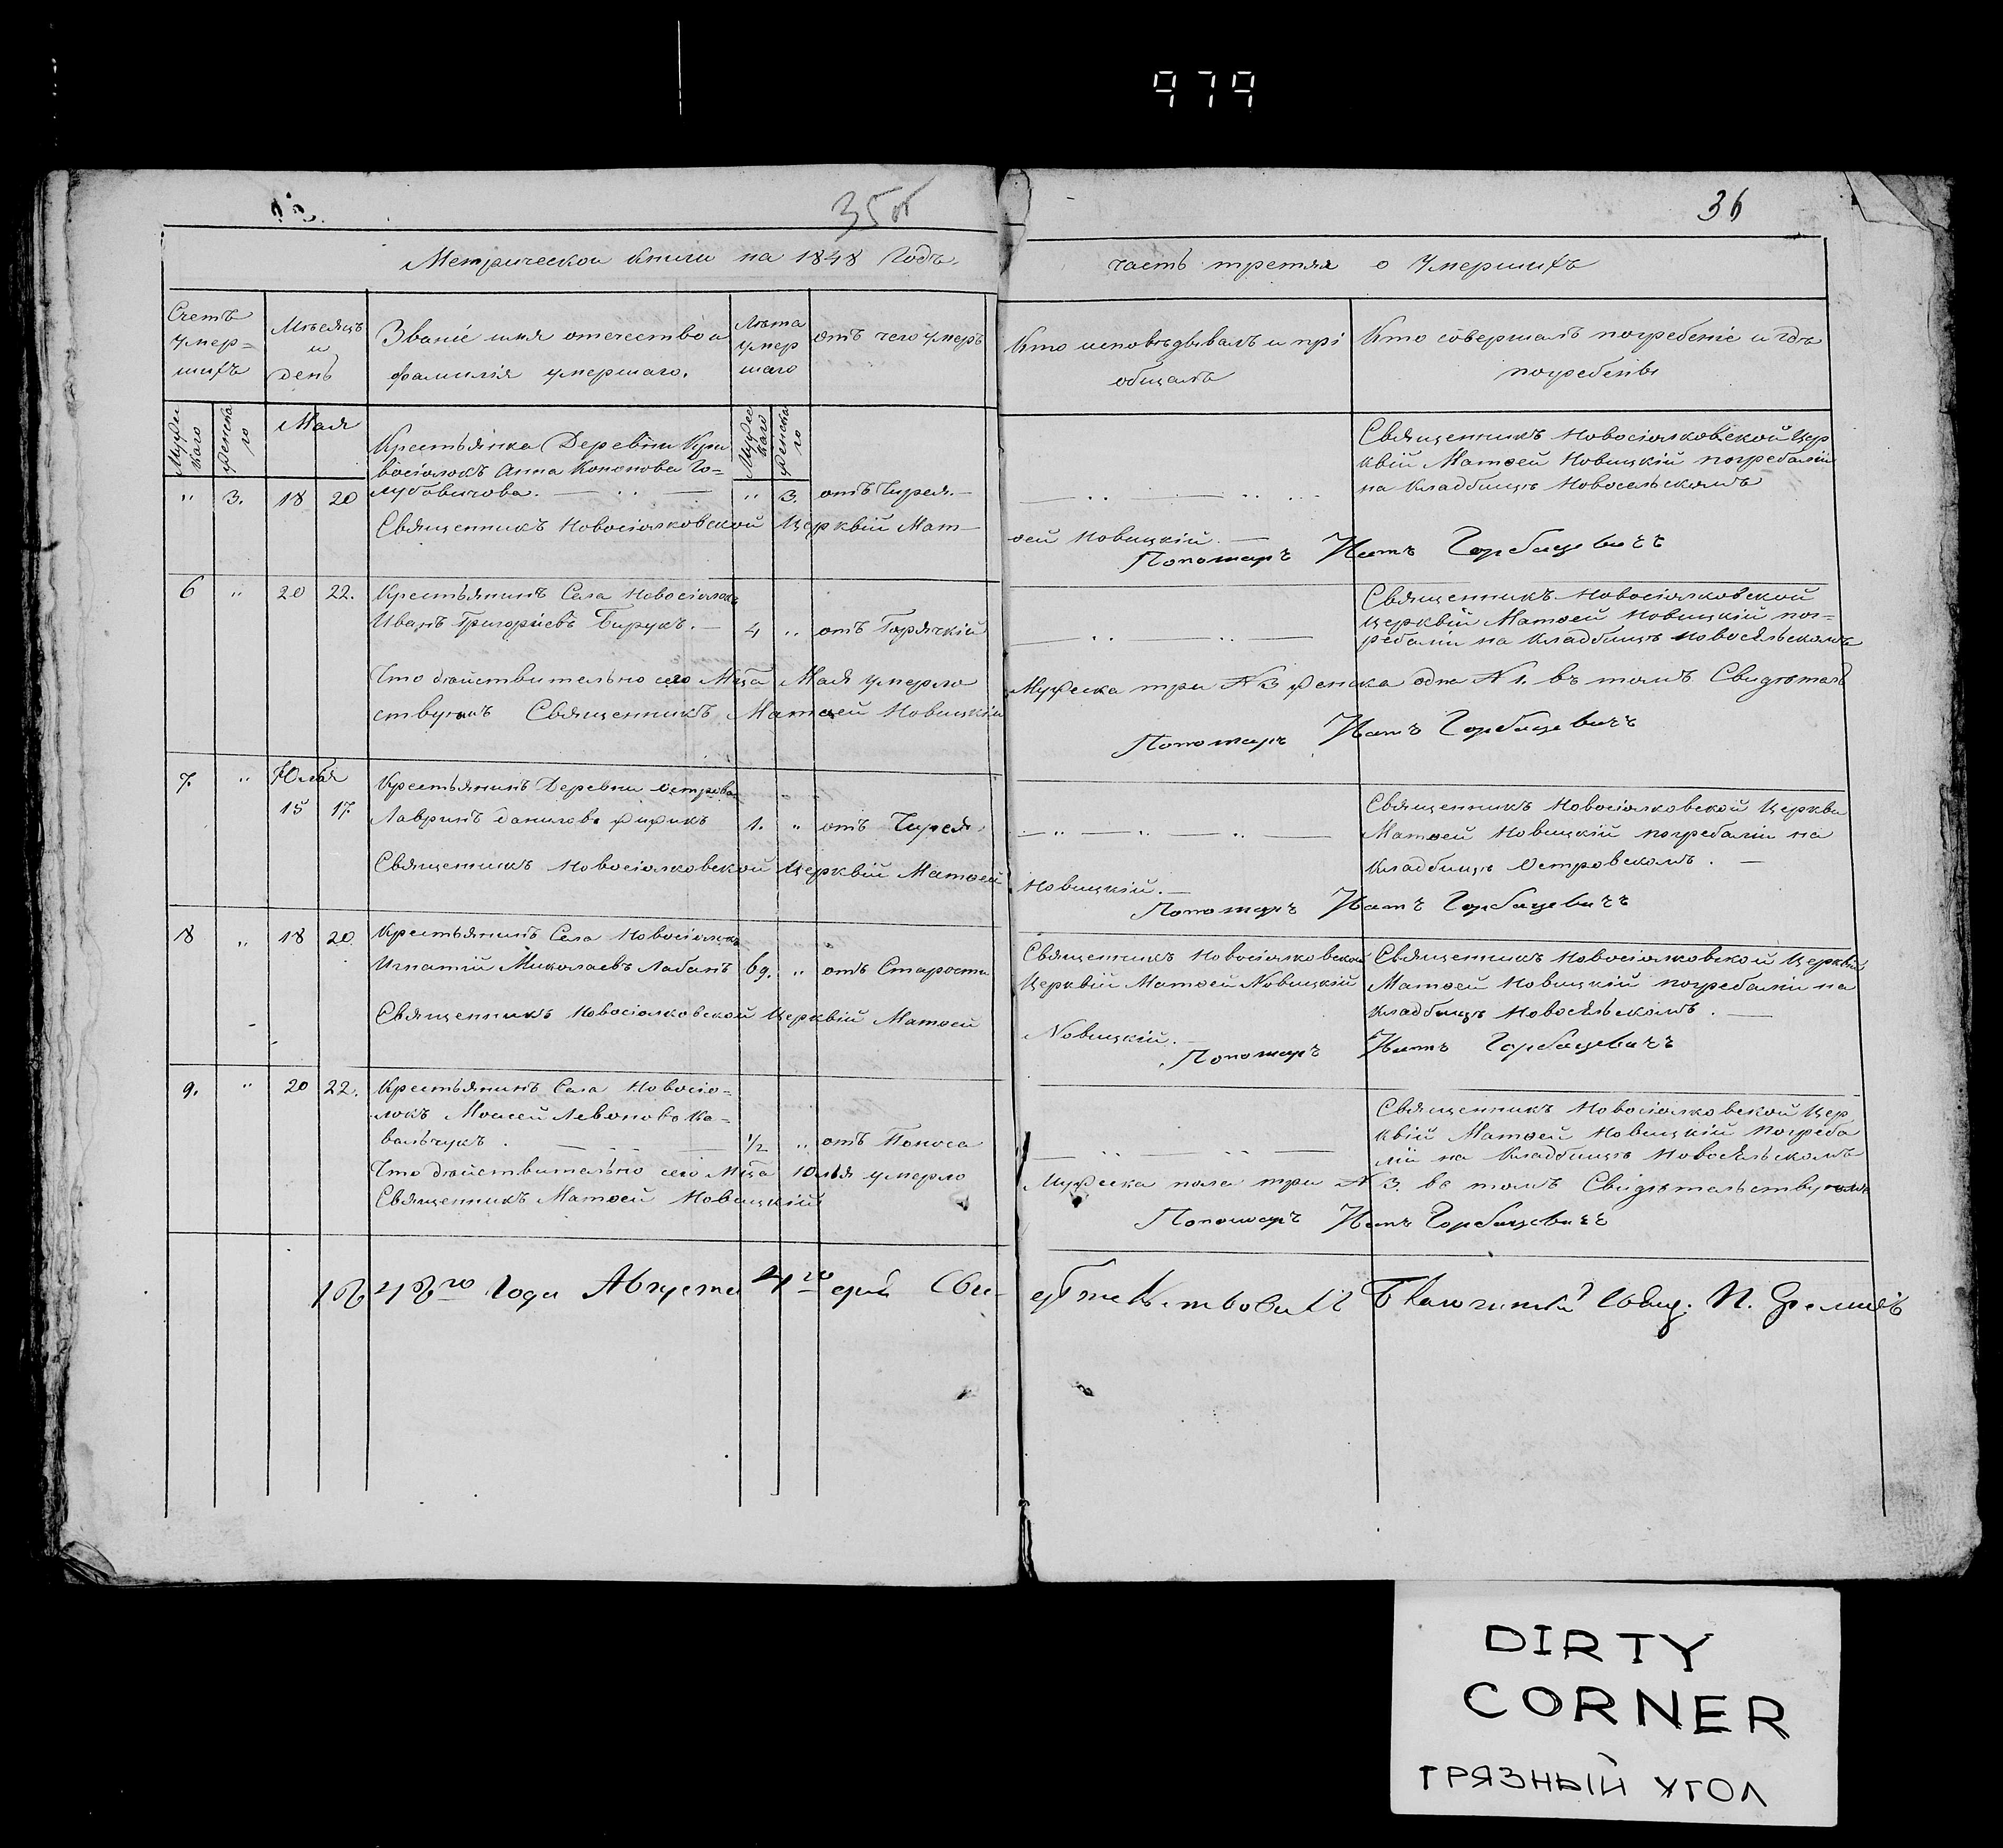 979
35об
36
Метрической книги на 1848 годъ.
часть третяя о Умершихъ
Счетъ умер=шихъ
Мѣсяцъ и день
Званіе имя отечество и фамилія умершаго.
Лѣта умершаго
отъ чего умеръ
Кто исповѣдывалъ и пріобщалъ
Кто совершалъ погребеніе и гдѣ погребены
Мужескаго
Женскаго
Мая
Мужескаго
Женскаго
Крестьянка Деревни Кри
восіолокъ Анна Кононова Го=
лубовичова.
" 3. 18 20
" 3. отъ Чирея.
Священникъ Новосіолковской Цер
квій Матѳей Новицкій погребалъ
на Кладбищѣ Новосельскомъ
Священникъ Новосіолковской Церквій Мат—
ѳей Новицкій.
Пономаръ Игнатъ Горбацевичъ
6 " 20 22. Крестьянинъ Села Новосіолокъ
Иванъ Григоріевъ Бирукъ. 4 " отъ Горячкій
Священникъ Новосіолковской
Церквій Матѳей Новицкій пог=
ребалъ на Кладбищѣ Новосельскомъ
Что дѣйствительно сего Мца Мая умерло
Мужеска три N 3 женска одна N 1. въ томъ Свидѣтель
ствуемъ Священникъ Матѳей Новицкій
Пономаръ Игнатъ Горбацевичъ
7. " Юлія
15 17. Крестьянинъ Деревни Острова
Лавринъ Даниловъ 1. " отъ Чирея.
Священникъ Новосіолковской Церкви
Матѳей Новицкій погребалъ на
Кладбищѣ Островскомъ.
Священникъ Новосіолковской Церквій Матѳей
Новицкій.
Пономаръ Игнатъ Горбацевичъ
8 " 18 20. Крестьянинъ Села Новосіолокъ
Игнатій Миколаевъ Лабанъ 69. " отъ Старости
Священникъ Новосіолковской
Церквій Матѳей Новицкій
Священникъ Новосіолковской Церквій
Матѳей Новицкій погребалъ на
Кладбищѣ Новосельскомъ.
Священникъ Новосіолковской Церквій Матѳей
Новицкій.
Пономаръ Игнатъ Горбацевичъ
9. " 20 22. Крестьянинъ Села Новосіо=
локъ Моисей Левоновъ Ко=
вальчукъ. 1/2 " отъ Поноса
Священникъ Новосіолковской Цер
квій Матѳей Новицкій Погреба
лъ на Кладбищѣ Новосельскомъ
Что дѣйствительно сего Мца Юлія умерло
Мужеска пола три N 3. въ томъ Свидѣтельствуемъ
Священникъ Матѳей Новицкій
Пономаръ Игнатъ Горбацевичъ
1848го года Августа 4го дня Сви
дѣтельствовалъ Благочинный Свящ.
DIRTY
CORNER
ГРЯЗНЫЙ УГОЛ